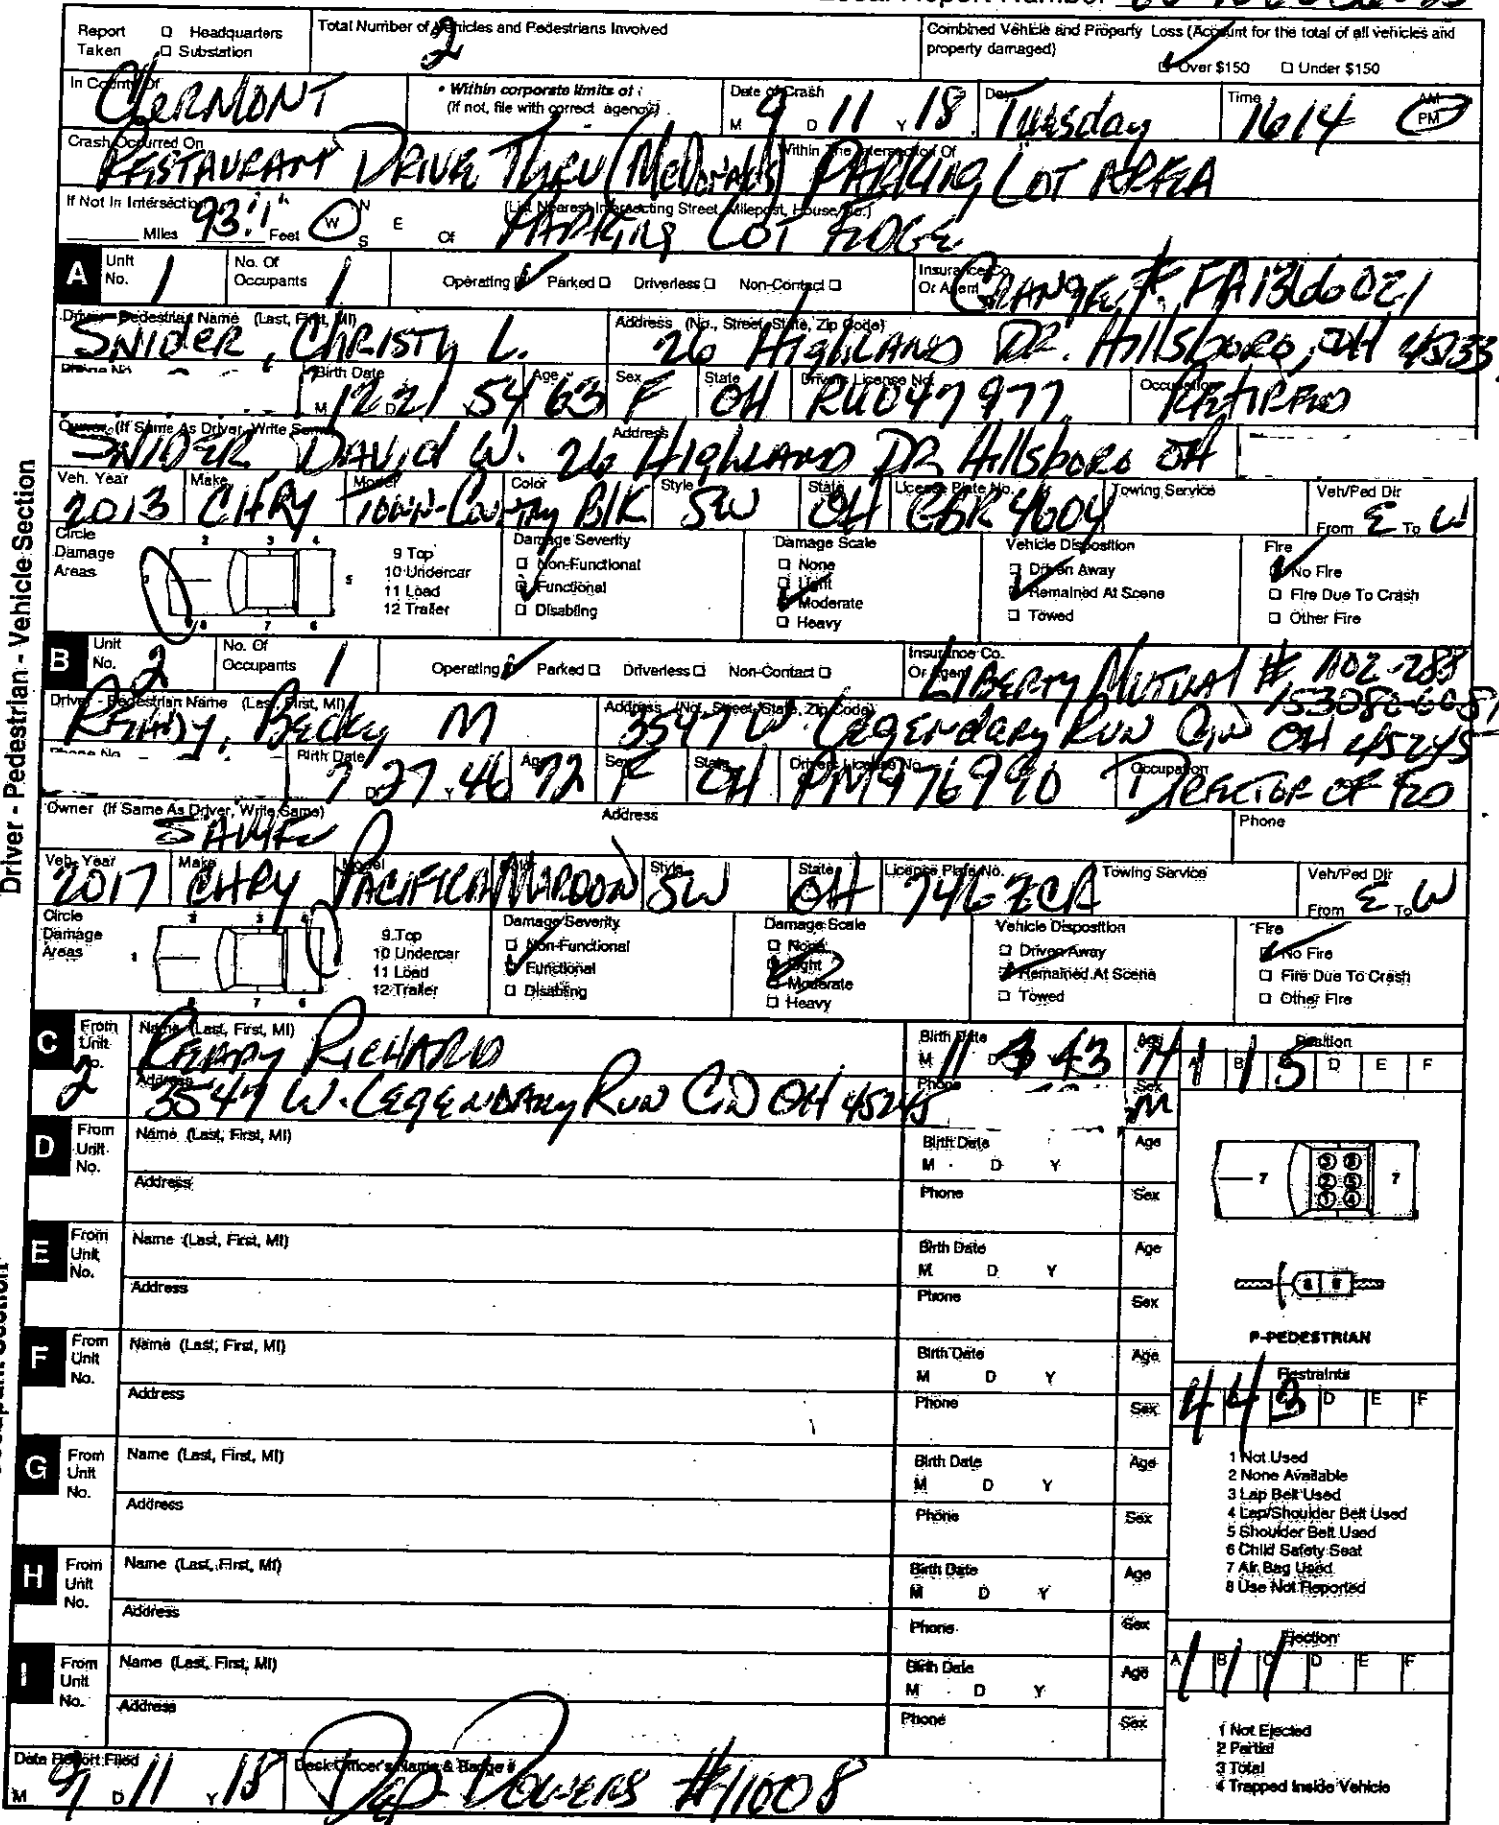 Local Report Number
Report Taken □ Headquarters □ Substation
Total Number of Vehicles and Pedestrians Involved
2
Combined Vehicle and Property Loss (Account for the total of all vehicles and property damaged)
Over $150 □ Under $150
In County Of CLERMONT
• Within corporate limits of :
(If not, file with correct agency)
Date of Crash M 9 D 11 Y 18
Day Tuesday
Time 1614 AM PM
Crash Occurred On RESTAURANT DRIVE THRU (McDonalds)
Within The Intersection Of PARKING LOT AREA
If Not In Intersection
Miles 93.1 Feet N W E S Of
(List Nearest Intersecting Street, Milepost, House No.)
PARKING LOT EDGE
Driver - Pedestrian - Vehicle Section
A Unit No. 1 No. Of Occupants 1
Operating Parked □ Driverless □ Non-Contact □
Insurance Co. Or Agent GRANGE # FA
Driver - Pedestrian Name (Last, First, MI) SNIDER, CHRISTY L.
Address (No., Street, State, Zip Code) 26 HIGHLAND DR. Hillsboro, OH 45133
Phone No.
Birth Date M 12 D 21 Y 54 Age 63 Sex F State OH Drivers License No. RU047977 Occupation RETIRED
Owner (If Same As Driver, Write Same) SNIDER DAVID W.
Address 26 HIGHLAND DR Hillsboro OH
Veh. Year 2013 Make CHRY Model TOWN-Country Color BlK Style SW State OH License Plate No. 4604 Towing Service Veh/Ped Dir From E To W
Circle Damage Areas
2 3 4
5
8 7 6
9 Top
10 Undercar
11 Load
12 Trailer
Damage Severity
□ Non-Functional
Functional
□ Disabling
Damage Scale
□ None
□ Light
Moderate
□ Heavy
Vehicle Disposition
□ Driven Away
Remained At Scene
□ Towed
Fire
No Fire
□ Fire Due To Crash
□ Other Fire
B Unit No. 2 No. Of Occupants 1
Operating Parked □ Driverless □ Non-Contact □
Insurance Co. Or Agent LIBERTY MUTUAL # A02-288
Driver - Pedestrian Name (Last, First, MI) Becky M
Address (No., Street, State, Zip Code) 3547 W. Legendary Run CIN OH 45245
Phone No.
Birth Date 7 D 27 Y 46 Age 72 Sex F State OH Drivers License No. PM976990 Occupation DIRECTOR OF
Owner (If Same As Driver, Write Same) SAME
Address
Phone
Veh. Year 2017 Make CHRY Model PACIFICA Color MAROON Style SW State OH License Plate No. 746ZCR Towing Service Veh/Ped Dir From E To W
Circle Damage Areas
2 3 4
1
8 7 6
9 Top
10 Undercar
11 Load
12 Trailer
Damage Severity
□ Non-Functional
Functional
□ Disabling
Damage Scale
□ None
Light
Moderate
□ Heavy
Vehicle Disposition
□ Driven Away
Remained At Scene
□ Towed
Fire
No Fire
□ Fire Due To Crash
□ Other Fire
C From Unit No. 2
Name (Last, First, MI) RICHARD
Birth Date M 11 D Y 43 Age
Address 3547 W. LEGENDARY RUN CIN OH 45245
Phone Sex M
Position
A B C D E F
1 1 5
D From Unit No. Name (Last, First, MI) Birth Date M D Y Age
Address Phone Sex
7 3 6 2 5 1 4 7
E From Unit No. Name (Last, First, MI) Birth Date M D Y Age
Address Phone Sex
P-PEDESTRIAN
F From Unit No. Name (Last, First, MI) Birth Date M D Y Age
Address Phone Sex
Restraints
D E F
4 4 3
G From Unit No. Name (Last, First, MI) Birth Date M D Y Age
Address Phone Sex
1 Not Used
2 None Available
3 Lap Belt Used
4 Lap/Shoulder Belt Used
5 Shoulder Belt Used
6 Child Safety Seat
7 Air Bag Used
8 Use Not Reported
H From Unit No. Name (Last, First, MI) Birth Date M D Y Age
Address Phone Sex
I From Unit No. Name (Last, First, MI) Birth Date M D Y Age
Address Phone Sex
Ejection
A B C D E F
1 1 1
1 Not Ejected
2 Partial
3 Total
4 Trapped Inside Vehicle
Date Report Filed M 9 D 11 Y 18
Desk Officer's Name & Badge # DEP. #11008